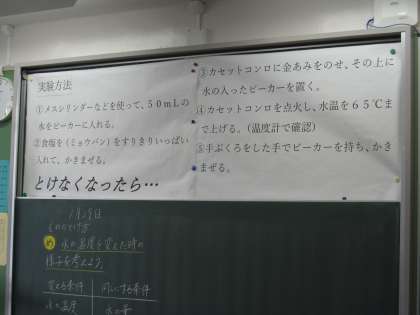 実験方法
①メスシリンダーなどを使って、５０ｍＬの
水をビーカーに入れる。
②食塩を（ミョウバン）をすりきりいっぱい
入れて、かきまぜる。
とけなくなったら…
③カセットコンロに金あみをのせ、その上に
水の入ったビーカーを置く。
④カセットコンロを点火し、水温を６５℃ま
で上げる。（温度計で確認）
⑤手ぶくろをした手でビーカーを持ち、かき
まぜる。
もののとけ方
め 水の温度を変えた時の
様子を考えよう。
変える条件 同じにする条件
水の温度 水の量